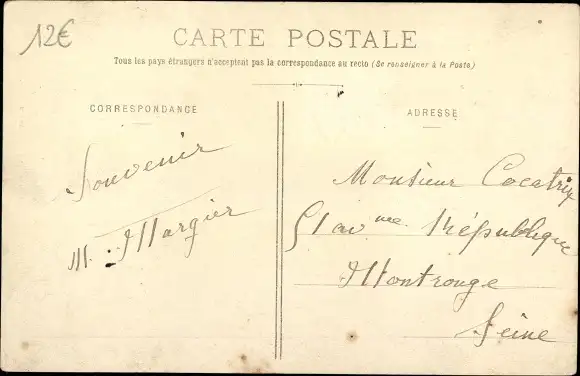 12€
CARTE POSTALE
Tous les pays étrangers n'acceptent pas la correspondance au recto (Se renseigner à la Poste)
CORRESPONDANCE
Souvenir
M. Margier
ADRESSE
Monsieur Cocatrix
51 av me République
Montrouge
Seine